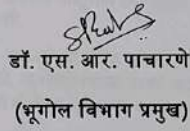 डॉ. एस. आर. पाचारणे
(भूगोल विभाग प्रमुख)